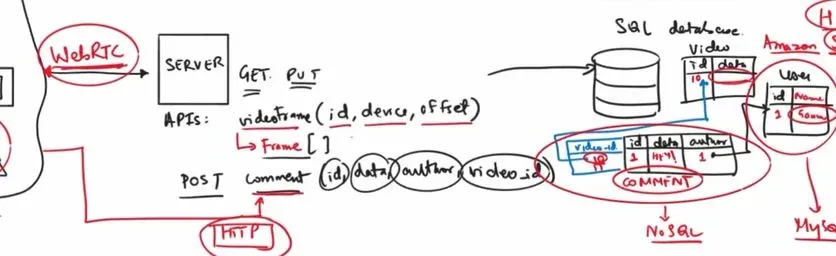 WebRTC
SERVER
GET PUT
APIs: videoframe (id, device, offset)
↳ Frame []
POST comment (id, data, author, video_id)
HTTP
SQL database
Video
id data
10
Amazon
User
id Name
1
video-id id data author
10 1 HEY! 1
11
COMMENT
NoSQL
MySQ
H